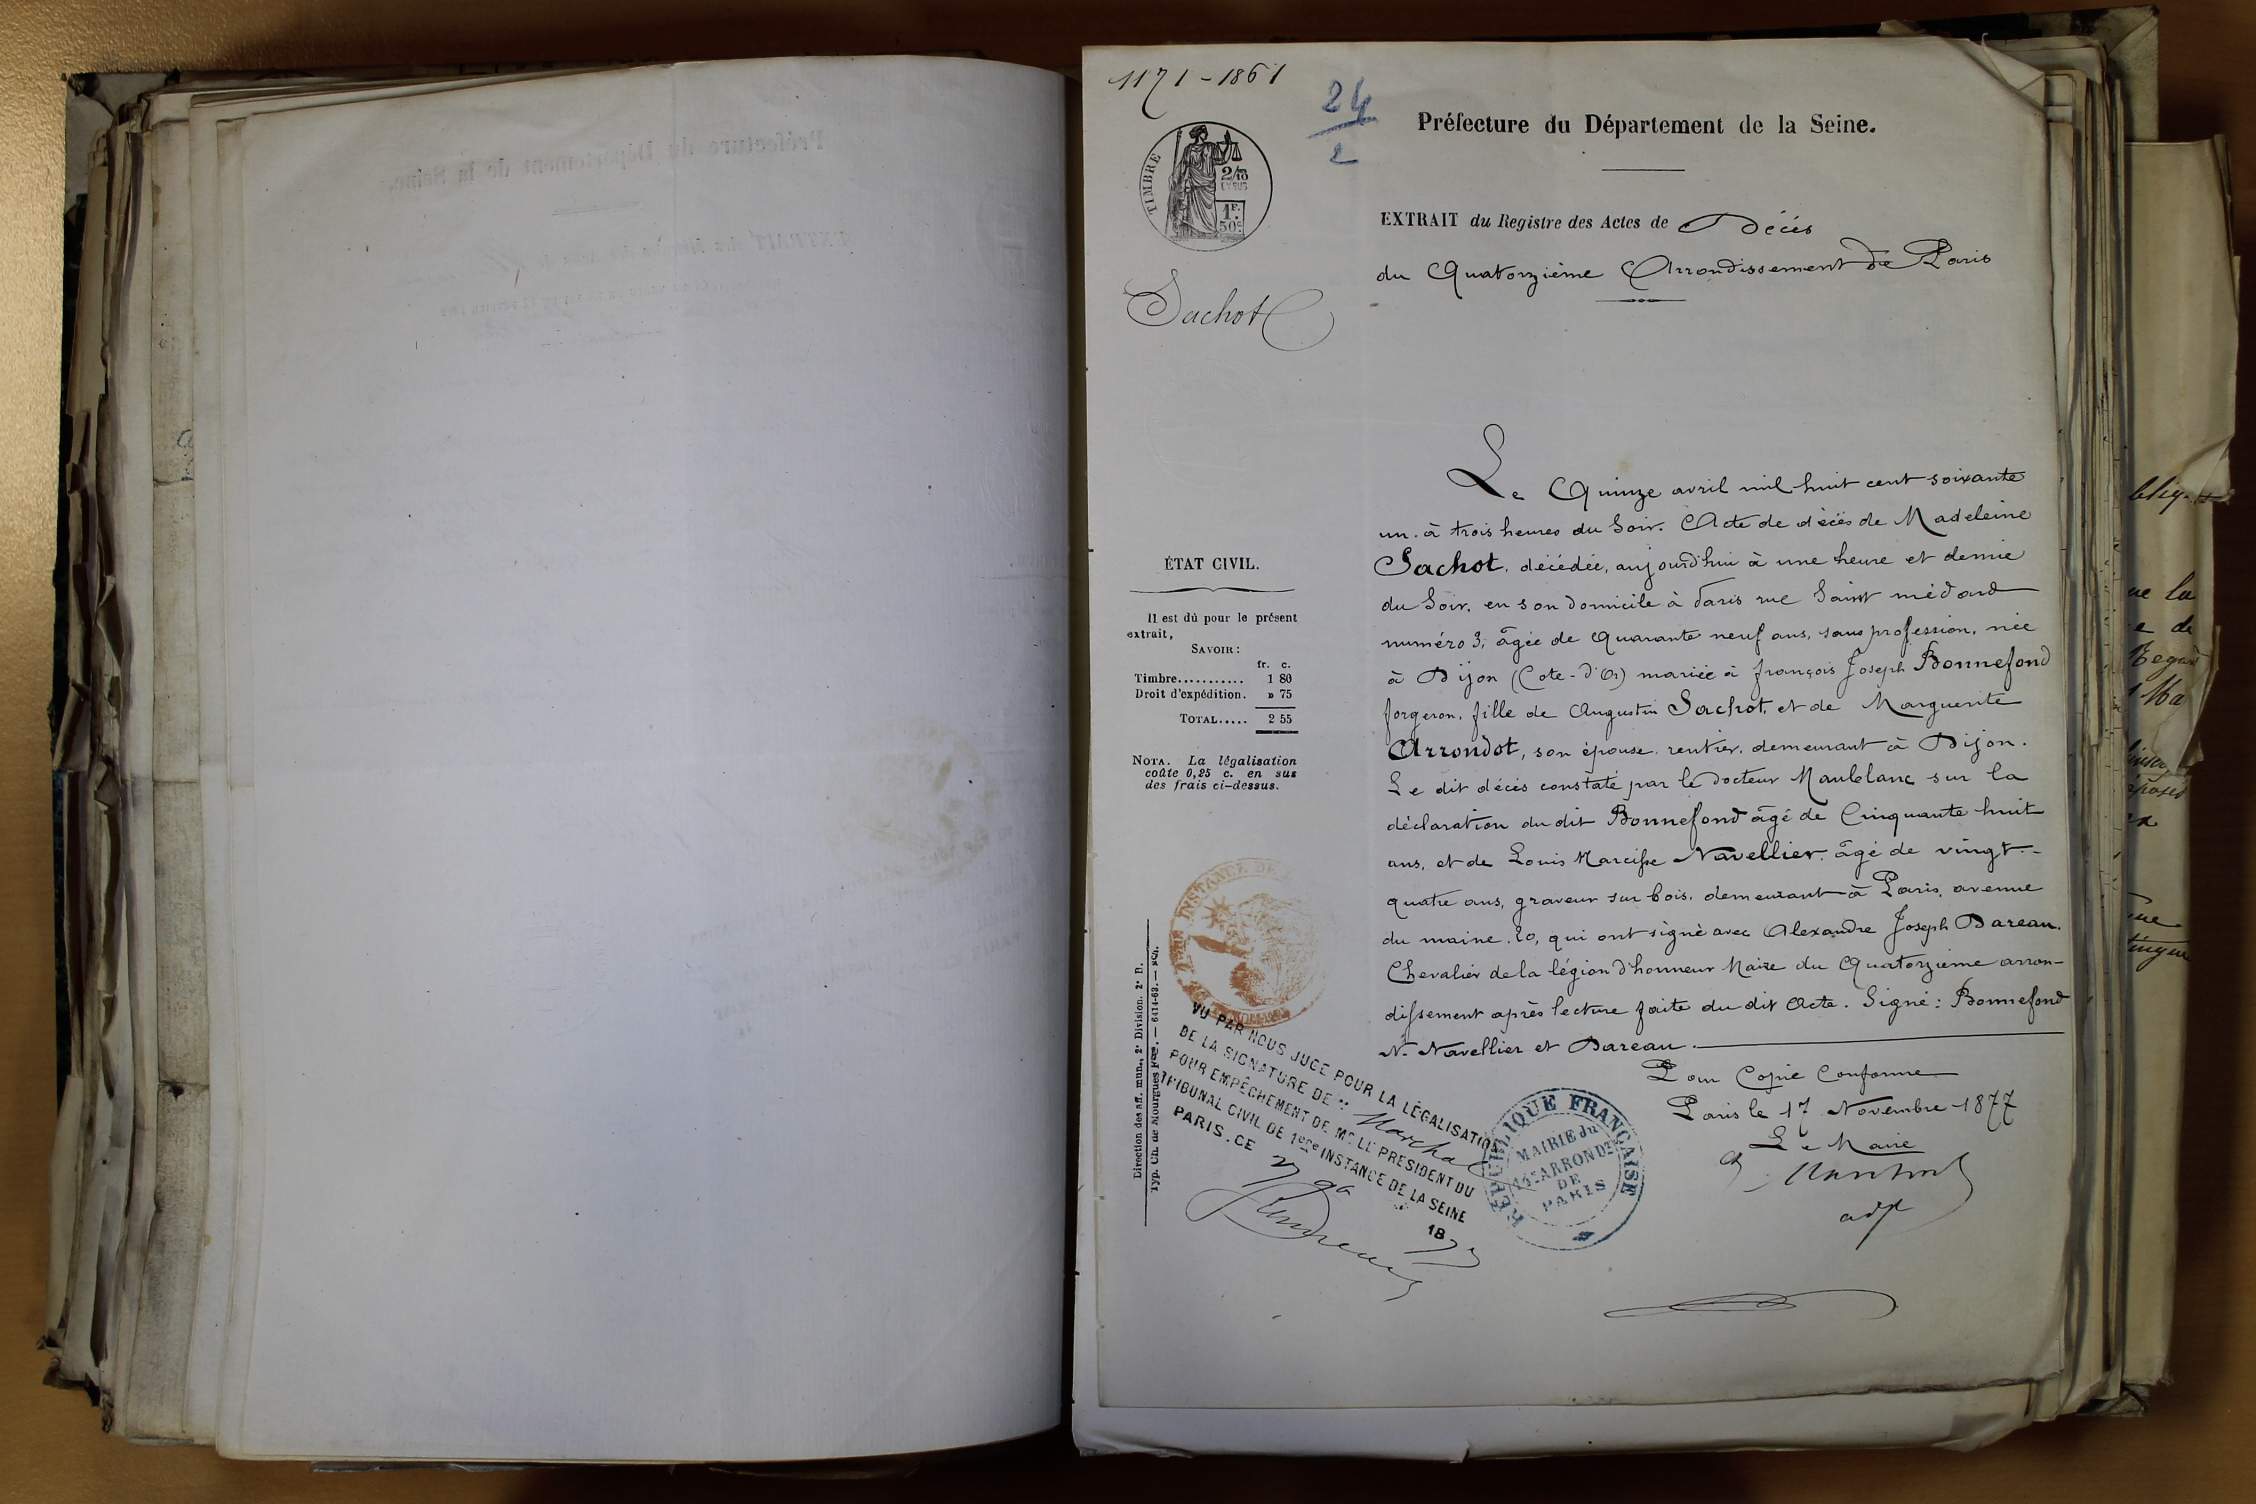 1171-1861
24
2
Préfecture du Département de la Seine.
TIMBRE
2/10
EN SUS
1F.
50c
EXTRAIT du Registre des Actes de Décès
du Quatorzième Arrondissement de Paris
Sachot
Le Quinze avril mil huit cent soixante
un. à trois heures du Soir. Acte de décès de Madeleine
Sachot, décédée, aujourd'hui à une heure et demie
du Soir, en son domicile à Paris rue Saint médard
numéro 3, âgée de Quarante neuf ans, sans profession, née
à Dijon (Cote-d'Or) mariée à françois Joseph Bonnefond
forgeron, fille de Augustin Sachot, et de Marguerite
Arrondot, son épouse, rentier, demeurant à Dijon.
Le dit décès constaté par le docteur Maublanc sur la
déclaration du dit Bonnefond âgé de Cinquante huit
ans, et de Louis Narcisse Navellier, âgé de vingt-
quatre ans, graveur sur bois, demeurant à Paris, avenue
du maine, 20, qui ont signé avec Alexandre Joseph Dareau,
Chevalier de la légion d'honneur Maire du Quatorzième arron-
dissement après lecture faite du dit Acte. Signé: Bonnefond
N. Navellier et Dareau.
Pour Copie Conforme
Paris le 17 Novembre 1877
Le Maire
adj
ÉTAT CIVIL.
Il est dû pour le présent
extrait,
SAVOIR:
fr. c.
Timbre........... 1 80
Droit d'expédition. » 75
TOTAL..... 2 55
NOTA. La légalisation
coûte 0,25 c. en sus
des frais ci-dessus.
INSTANCE DE
VU PAR NOUS JUGE POUR LA LÉGALISATION
DE LA SIGNATURE DE M. Marchal
POUR EMPÊCHEMENT DE Mr LE PRÉSIDENT DU
TRIBUNAL CIVIL DE 1ère INSTANCE DE LA SEINE
PARIS, CE 1877
RÉPUBLIQUE FRANÇAISE
MAIRIE du
14e ARRONDt
DE
PARIS
Direction des aff. mun., 2e Division. 2e B.
Typ. Ch. de Mourgues Fres. — 6414-63. —